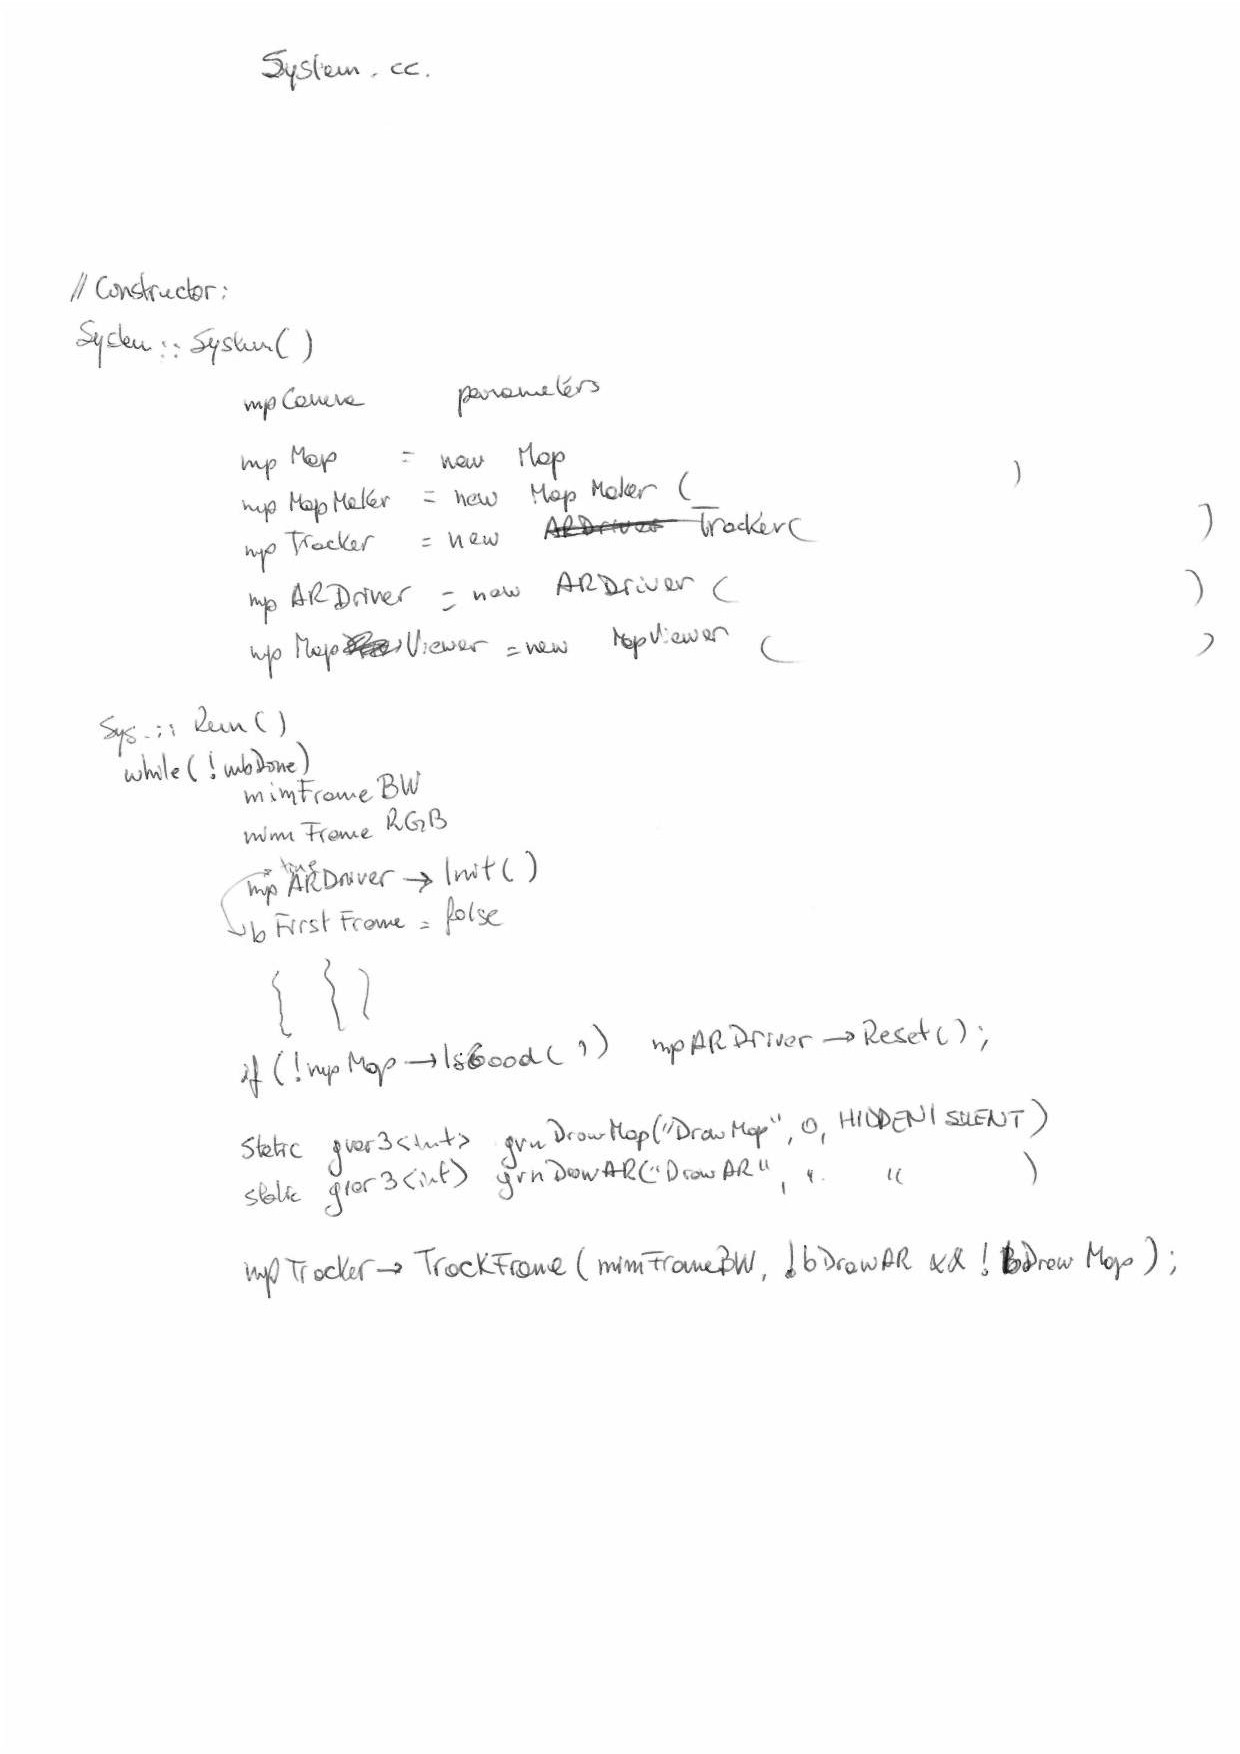 System.cc.
// Constructor:
System::System()
mpCamera parameters
mpMap = new Map
mpMapMaker = new MapMaker ( )
mpTracker = new ARDriver Tracker( )
mpARDriver = new ARDriver ( )
mpMapViewer = new MapViewer ( )
Sys.:: Run()
while(!mbDone)
mimFrameBW
mimFrameRGB
true
mpARDriver → Init()
bFirstFrame = false
{ { }
if (!mpMap → IsGood( , ) mpARDriver → Reset();
static gvar3<int> gvnDrawMap("DrawMap", 0, HIDDEN|SILENT)
static gvar3<int> gvnDrawAR("DrawAR", " " )
mpTracker → TrackFrame(mimFrameBW, !bDrawAR && !bDrawMap);